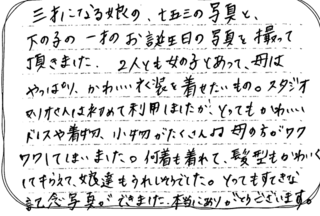 三才になる娘の、七五三の写真と、
下の子の一才のお誕生日の写真を撮って
頂きました。2人とも女の子とあって、母は
やっぱり、かわいい衣装を着せたいもの。スタジオ
さんは初めて利用しましたが、とってもかわいい
ドレスや着物、小物がたくさんで母の方がワク
ワクしてしまいました。何着も着れて、髪型もかわいく
してもらえて、娘達もうれしそうでした。とってもすてきな
記念写真ができました。本当にありがとうございます。